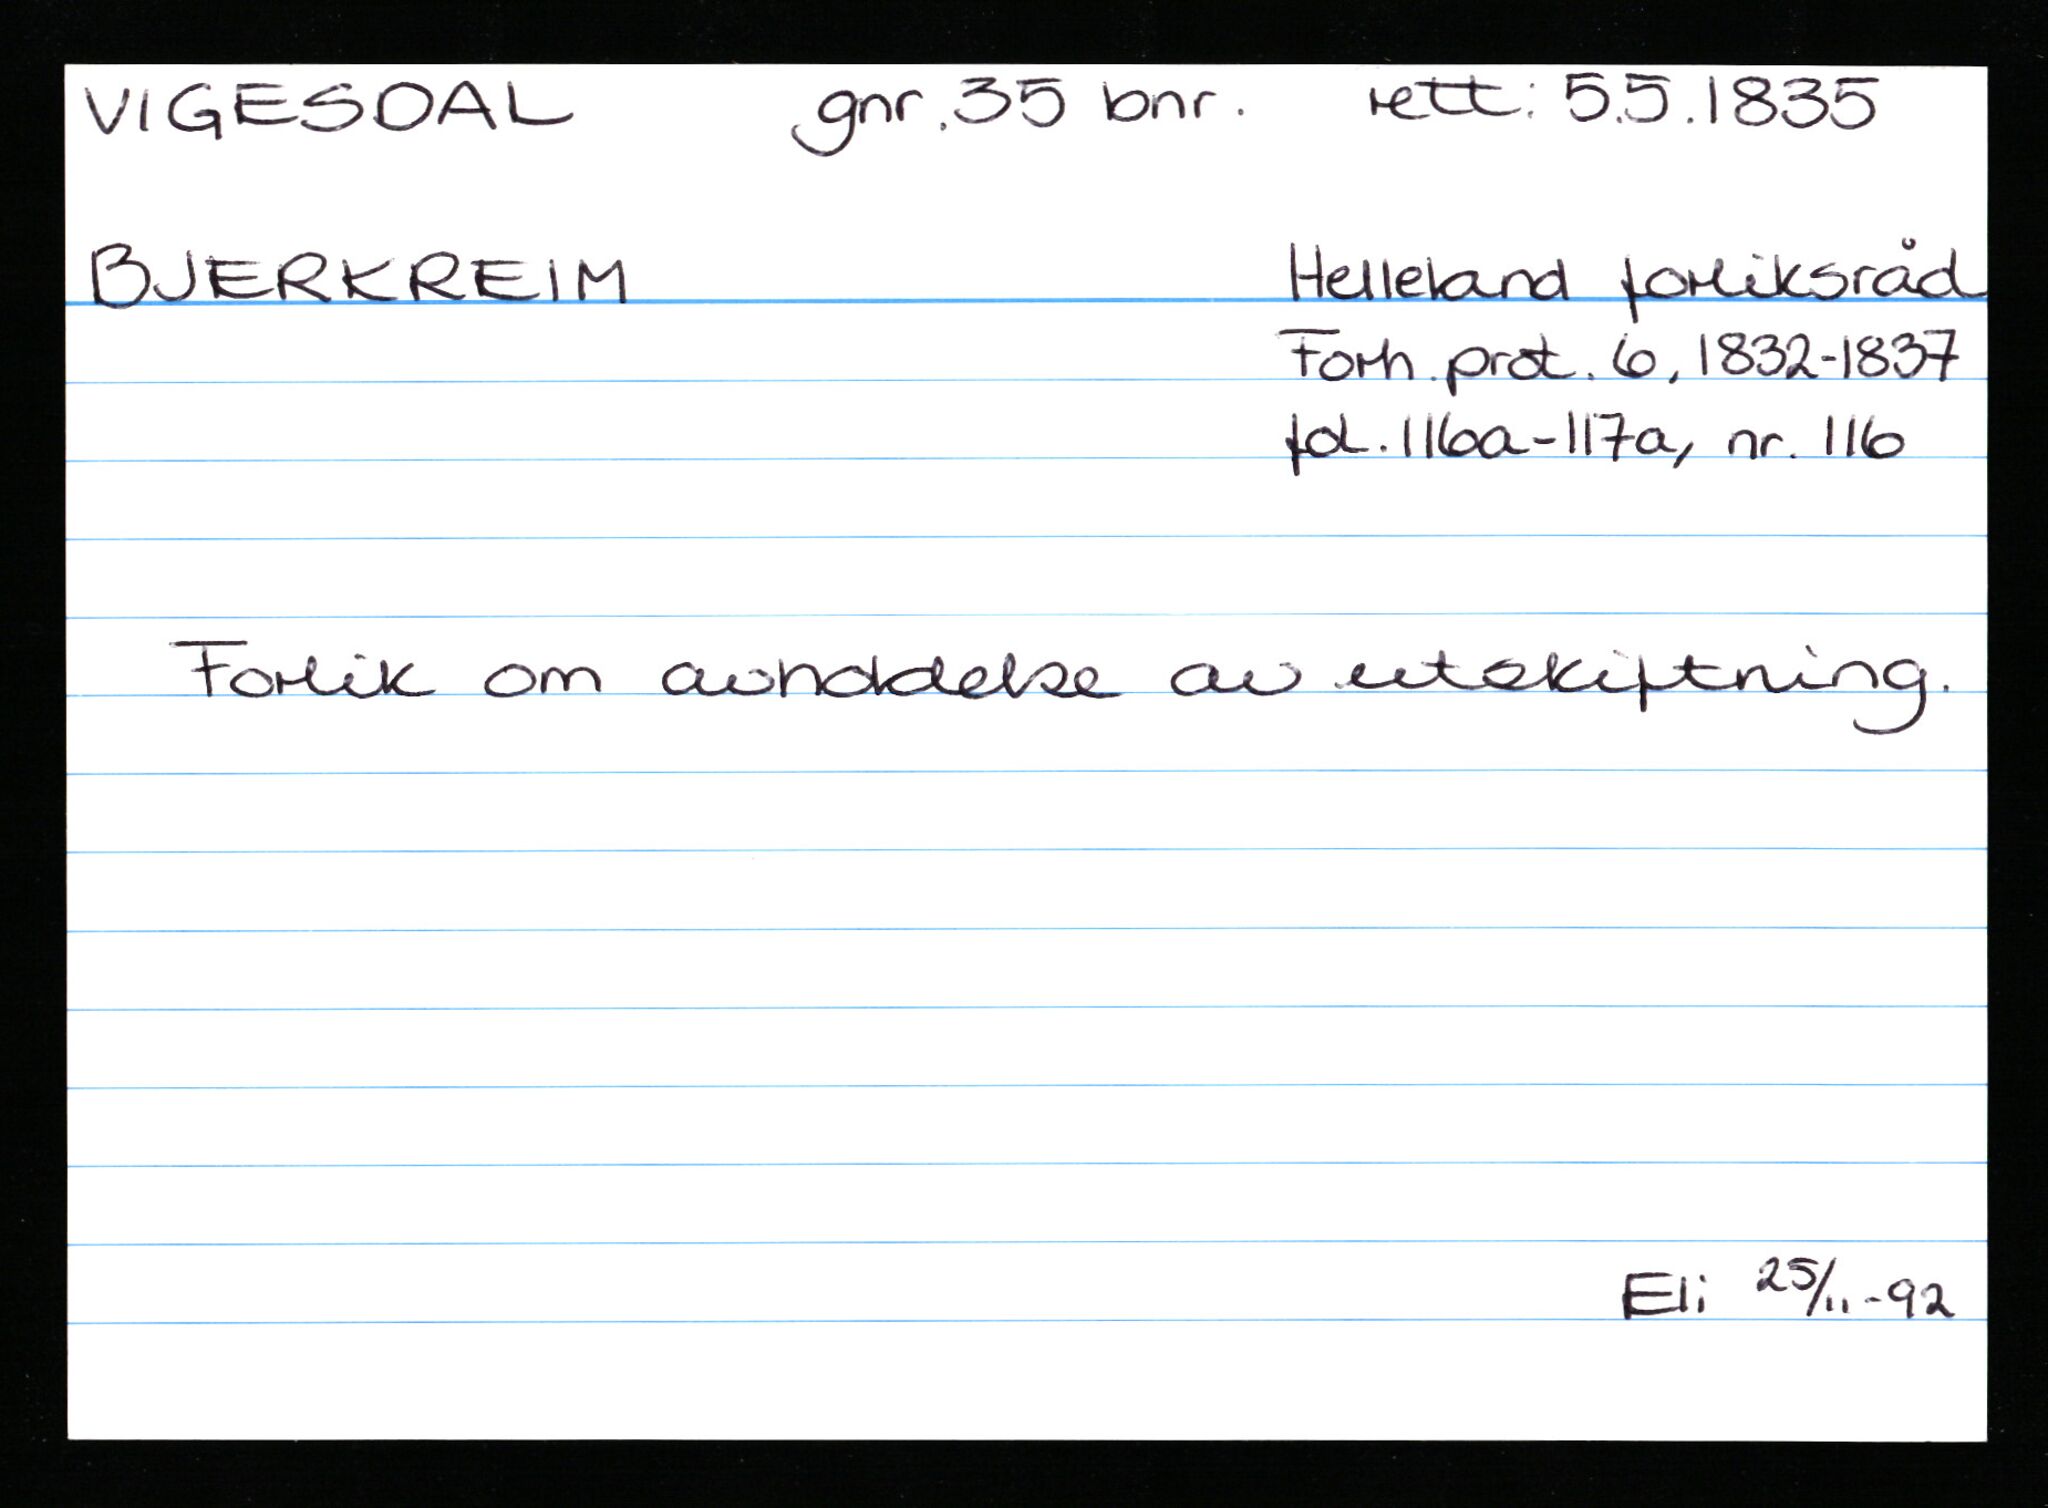 VIGESDAL gnr. 35 bnr. rett: 5.5.1835
BJERKREIM Helleland forliksråd
Forh. prot. 6, 1832-1837
fol. 116a-117a, nr. 116
Forlik om avholdelse av utskiftning.
Eli 25/11-92